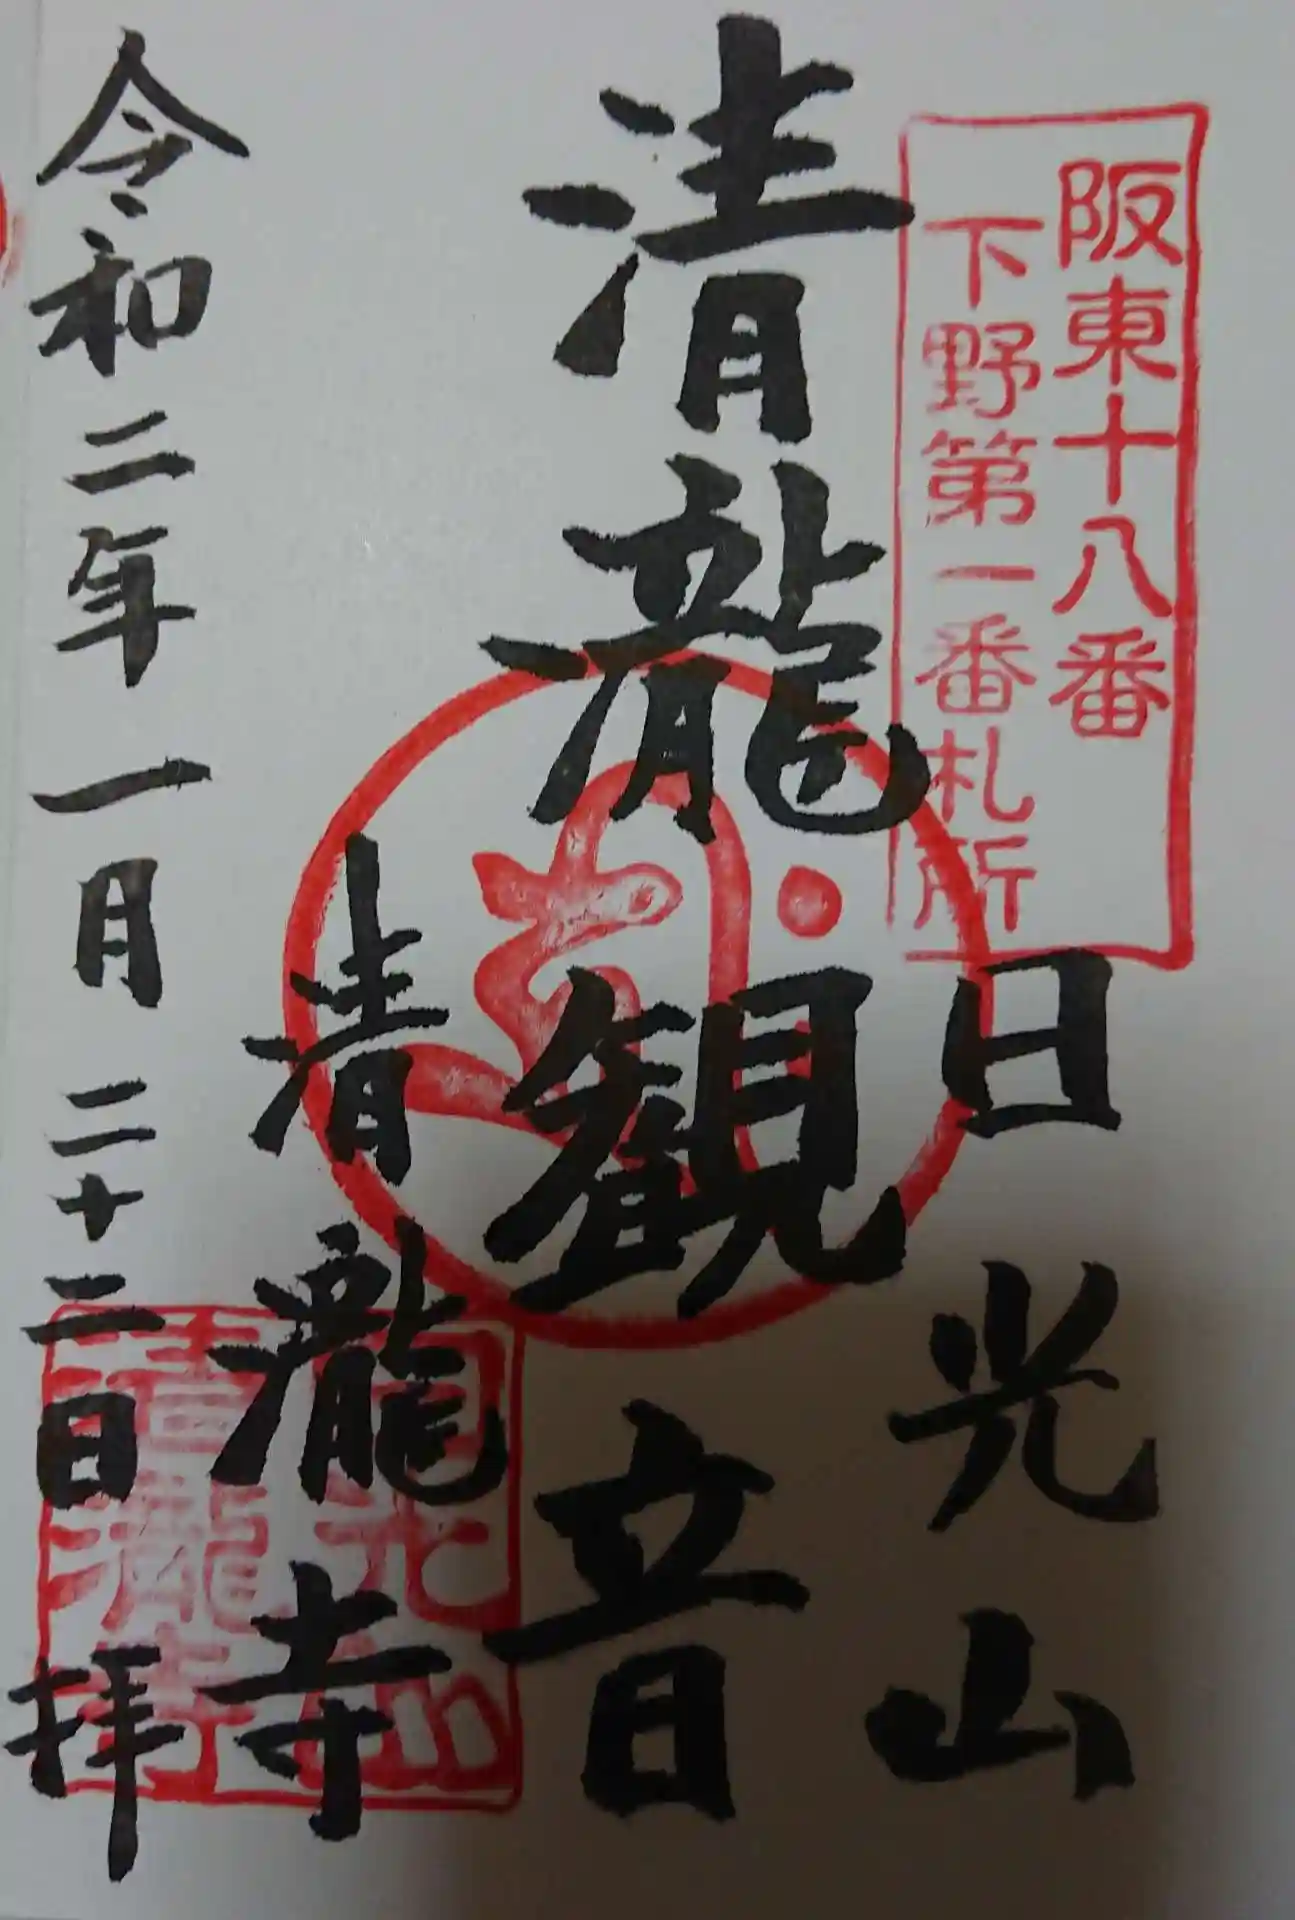 阪東十八番
下野第一番札所
日光山
清瀧観音
清瀧寺
令和二年一月二十二日拝
日光山
清瀧寺